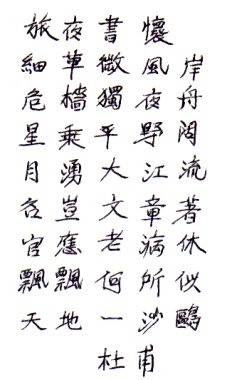 旅夜書懷
細草微風岸
危檣獨夜舟
星垂平野闊
月湧大江流
名豈文章著
官應老病休
飄飄何所似
天地一沙鷗
杜甫